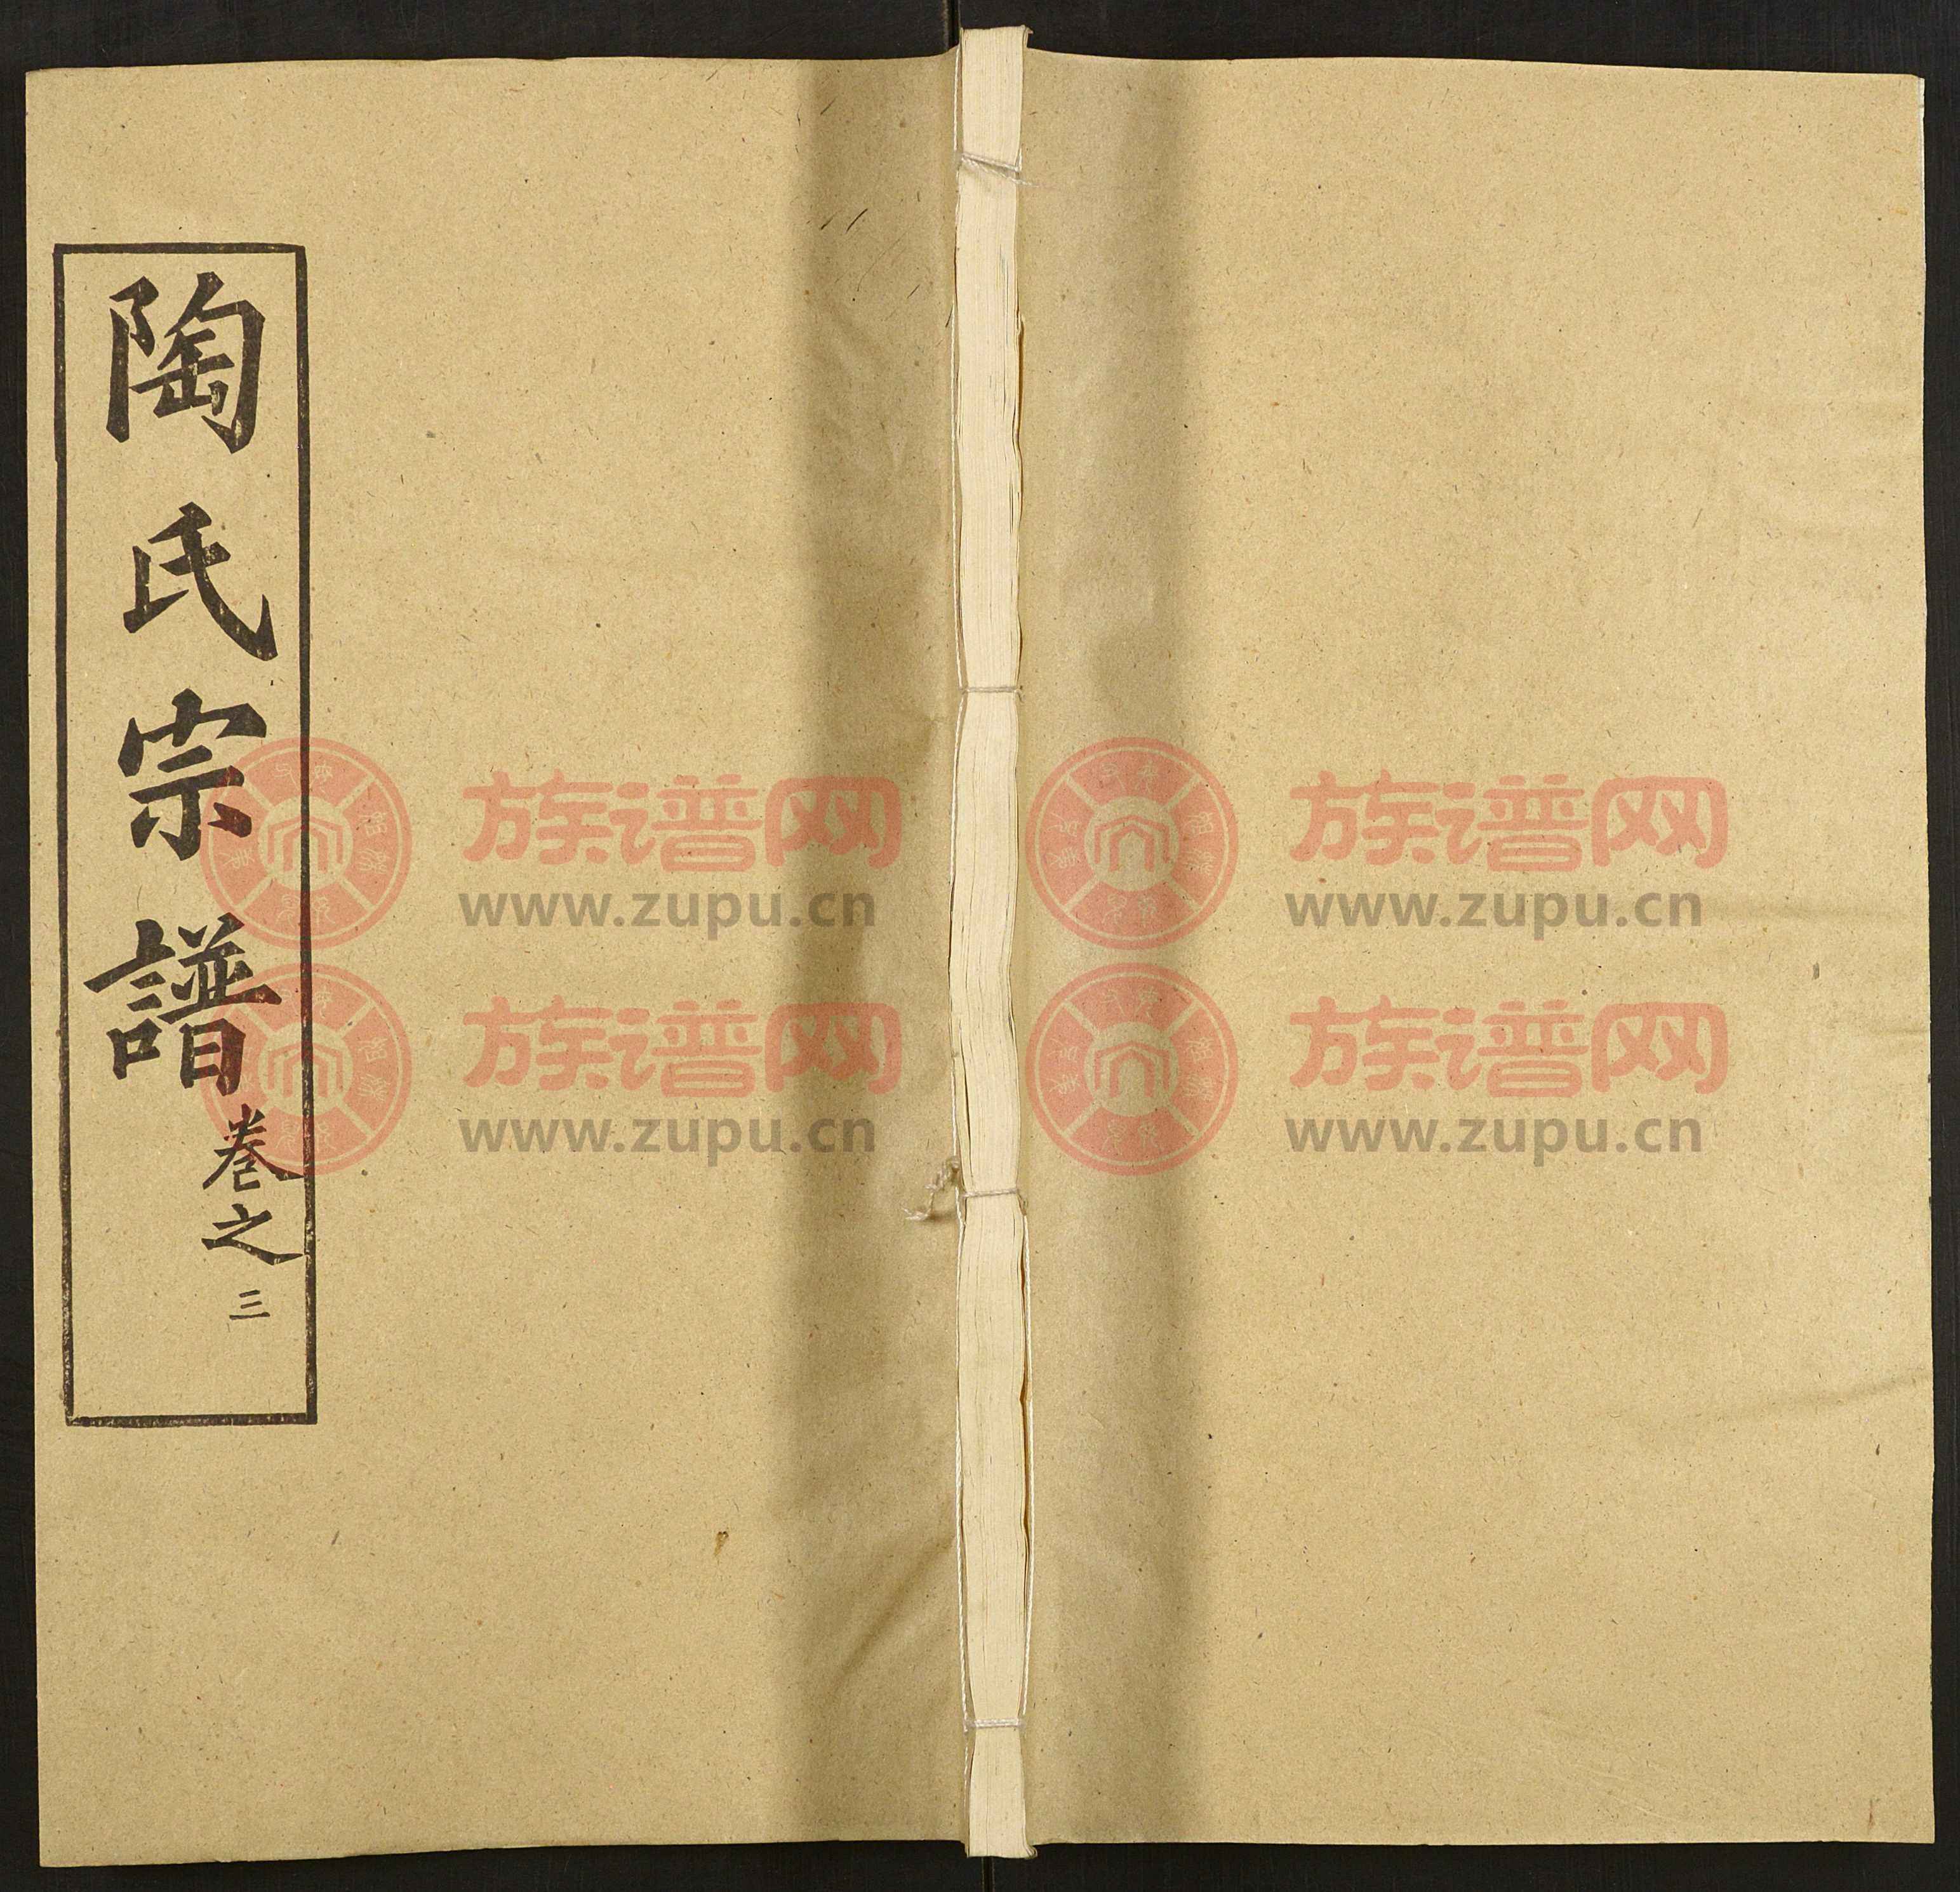 陶氏宗譜
卷之三
族谱网
www.zupu.cn
族谱网
www.zupu.cn
族谱网
www.zupu.cn
族谱网
www.zupu.cn